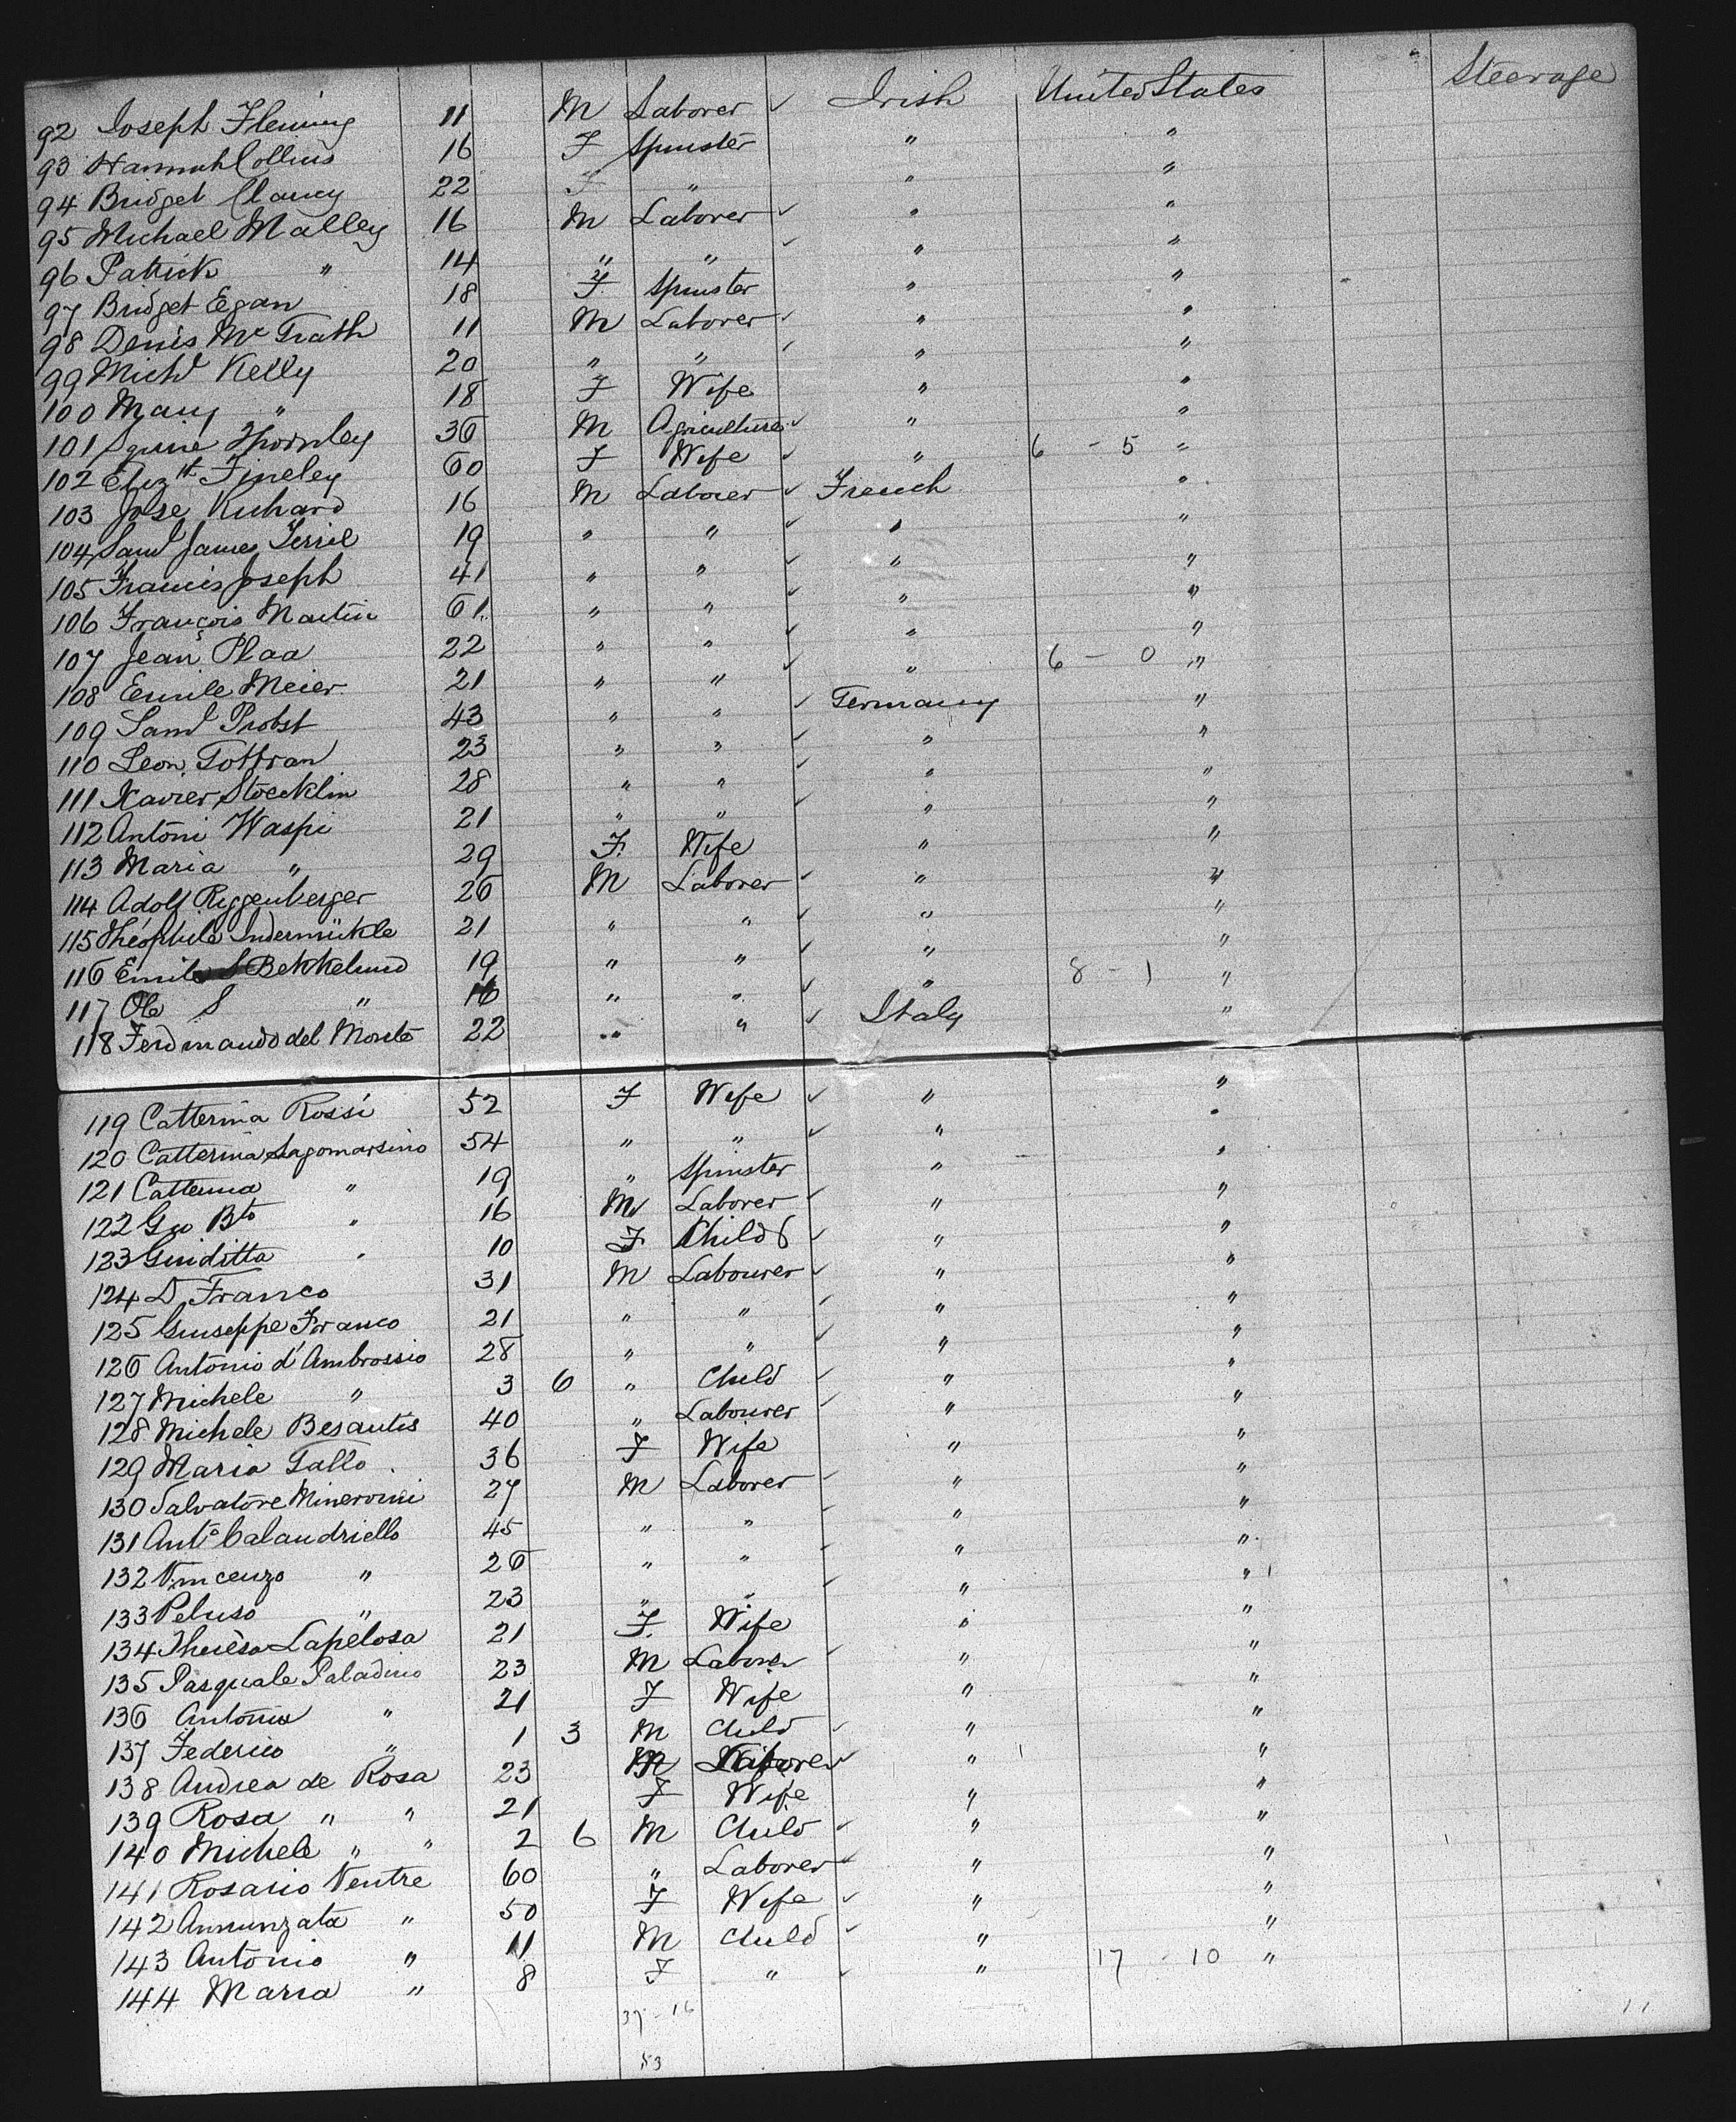 92 Joseph Fleming 11 M Laborer ✓ Irish United States Steerage
93 Hannah Collins 16 F Spinster " "
94 Bridget Clancy 22 F " " "
95 Michael Malley 16 M Laborer ✓ " "
96 Patrick " 14 " " ✓ " "
97 Bridget Egan 18 F Spinster " "
98 Denis McGrath 11 M Laborer ✓ " "
99 Michl Kelly 20 " " ✓ " "
100 Mary " 18 F Wife " "
101 Squire Thornley 36 M Agriculture ✓ " "
102 Elizth Fineley 60 F Wife ✓ " 6 - 5 "
103 Jose Richard 16 M Laborer ✓ French "
104 Saml James 19 " " ✓ " "
105 Francis Joseph 41 " " ✓ " "
106 François Martin 61 " " ✓ " "
107 Jean Plaa 22 " " ✓ " "
108 Emile Meier 21 " " ✓ " 6 - 0 "
109 Saml Probst 43 " " ✓ Germany "
110 Leon Gottran 23 " " ✓ " "
111 Xavier Stoecklin 28 " " ✓ " "
112 Antoni Waspi 21 " " ✓ " "
113 Maria " 29 F. Wife " "
114 Adolf Reggenberger 26 M Laborer ✓ " "
115 Théophile Indermükle 21 " " ✓ " "
116 Emil S Bekkelund 19 " " ✓ " "
117 Ole S " 16 " " ✓ " 8 - 1 "
118 Ferdinando del Monte 22 " " ✓ Italy "
119 Catterina Rossi 52 F Wife ✓ " "
120 Catterina Sagomarsino 54 " " ✓ " "
121 Catterina " 19 " Spinster " "
122 Gio Bto " 16 M Laborer ✓ " "
123 Giuditta " 10 F Child ✓ " "
124 D Franco 31 M Labourer ✓ " "
125 Giuseppe Franco 21 " " ✓ " "
126 Antonio d'Ambrossio 28 " " ✓ " "
127 Michele " 3 6 " Child ✓ " "
128 Michele Besautis 40 " Labourer ✓ " "
129 Maria Gallo 36 F Wife " "
130 Salvatore Minervini 27 M Laborer ✓ " "
131 Anto Calandriello 45 " " ✓ " "
132 Vincenzo " 26 " " ✓ " "
133 Peluso " 23 " " ✓ " "
134 Theresa Lapelosa 21 F. Wife " "
135 Pasquale Paladino 23 M Laborer ✓ " "
136 Antonia " 21 F Wife " "
137 Federico " 1 3 M Child ✓ " "
138 Andrea de Rosa 23 M Laborer ✓ " "
139 Rosa " " 21 F Wife " "
140 Michele " " 2 6 M Child ✓ " "
141 Rosario Ventre 60 " Laborer ✓ " "
142 Annunzata " 50 F Wife ✓ " "
143 Antonio " 11 M Child ✓ " "
144 Maria " 8 F " ✓ " 17 - 10 "
37 - 16
53